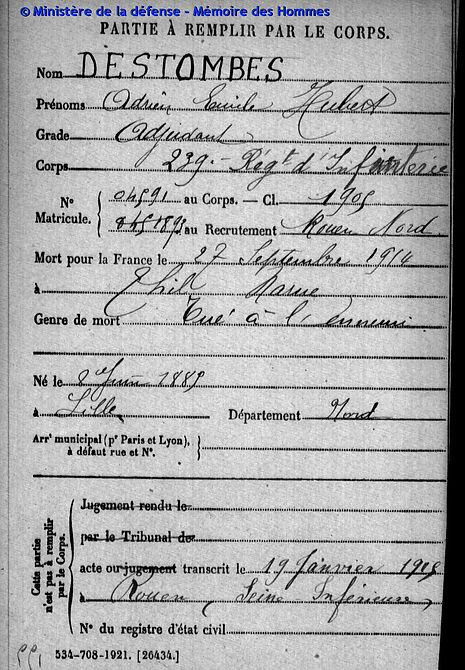 © Ministère de la défense - Mémoire des Hommes
PARTIE À REMPLIR PAR LE CORPS.
Nom DESTOMBES
Prénoms Adrien Emile Hubert
Grade Adjudant
Corps 239e Regt d'Infanterie
N° Matricule. { 04591 au Corps. — Cl. 1905
au Recrutement Rouen Nord
Mort pour la France le 27 Septembre 1914
à Thil Marne
Genre de mort Tué à l'ennemi
Né le Juin
à Lille Département Nord
Arrt municipal (pr Paris et Lyon), à défaut rue et N°. }
Cette partie n'est pas à remplir par le Corps.
Jugement rendu le
par le Tribunal de
acte ou jugement transcrit le 19 Janvier 1915
à Rouen (Seine Inférieure)
N° du registre d'état civil
534-708-1921. [26434.]